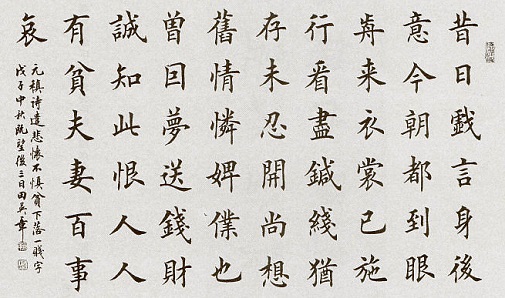 昔日戯言身後
意今朝都到眼
歬来衣裳已施
行看盡鍼綫猶
存未忍開尚想
舊情憐婢僕也
曾回夢送錢財
誠知此恨人人
有貧夫妻百事
哀
元稹詩遣悲懷不慎貧下落一賤字
戊子中秋既望後三日田英章